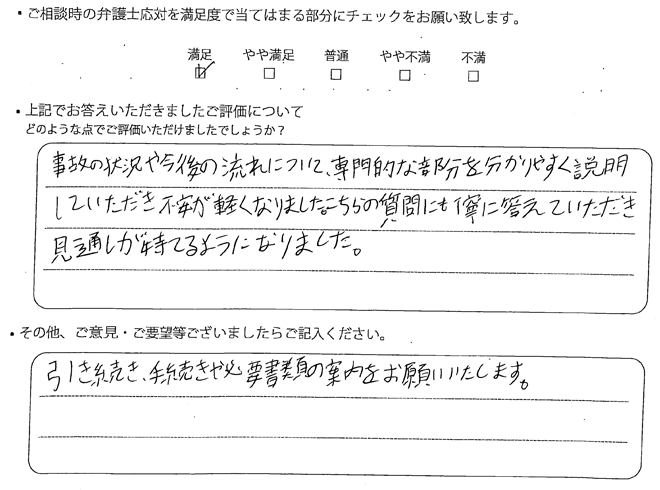 ・ご相談時の弁護士応対を満足度で当てはまる部分にチェックをお願い致します。
満足 やや満足 普通 やや不満 不満
・上記でお答えいただきましたご評価について
どのような点でご評価いただけましたでしょうか？
事故の状況や今後の流れについて、専門的な部分を分かりやすく説明
していただき不安が軽くなりました。こちらの質問にも丁寧に答えていただき
見通しが持てるようになりました。
・その他、ご意見・ご要望等ございましたらご記入ください。
引き続き、手続きや必要書類の案内をお願いいたします。